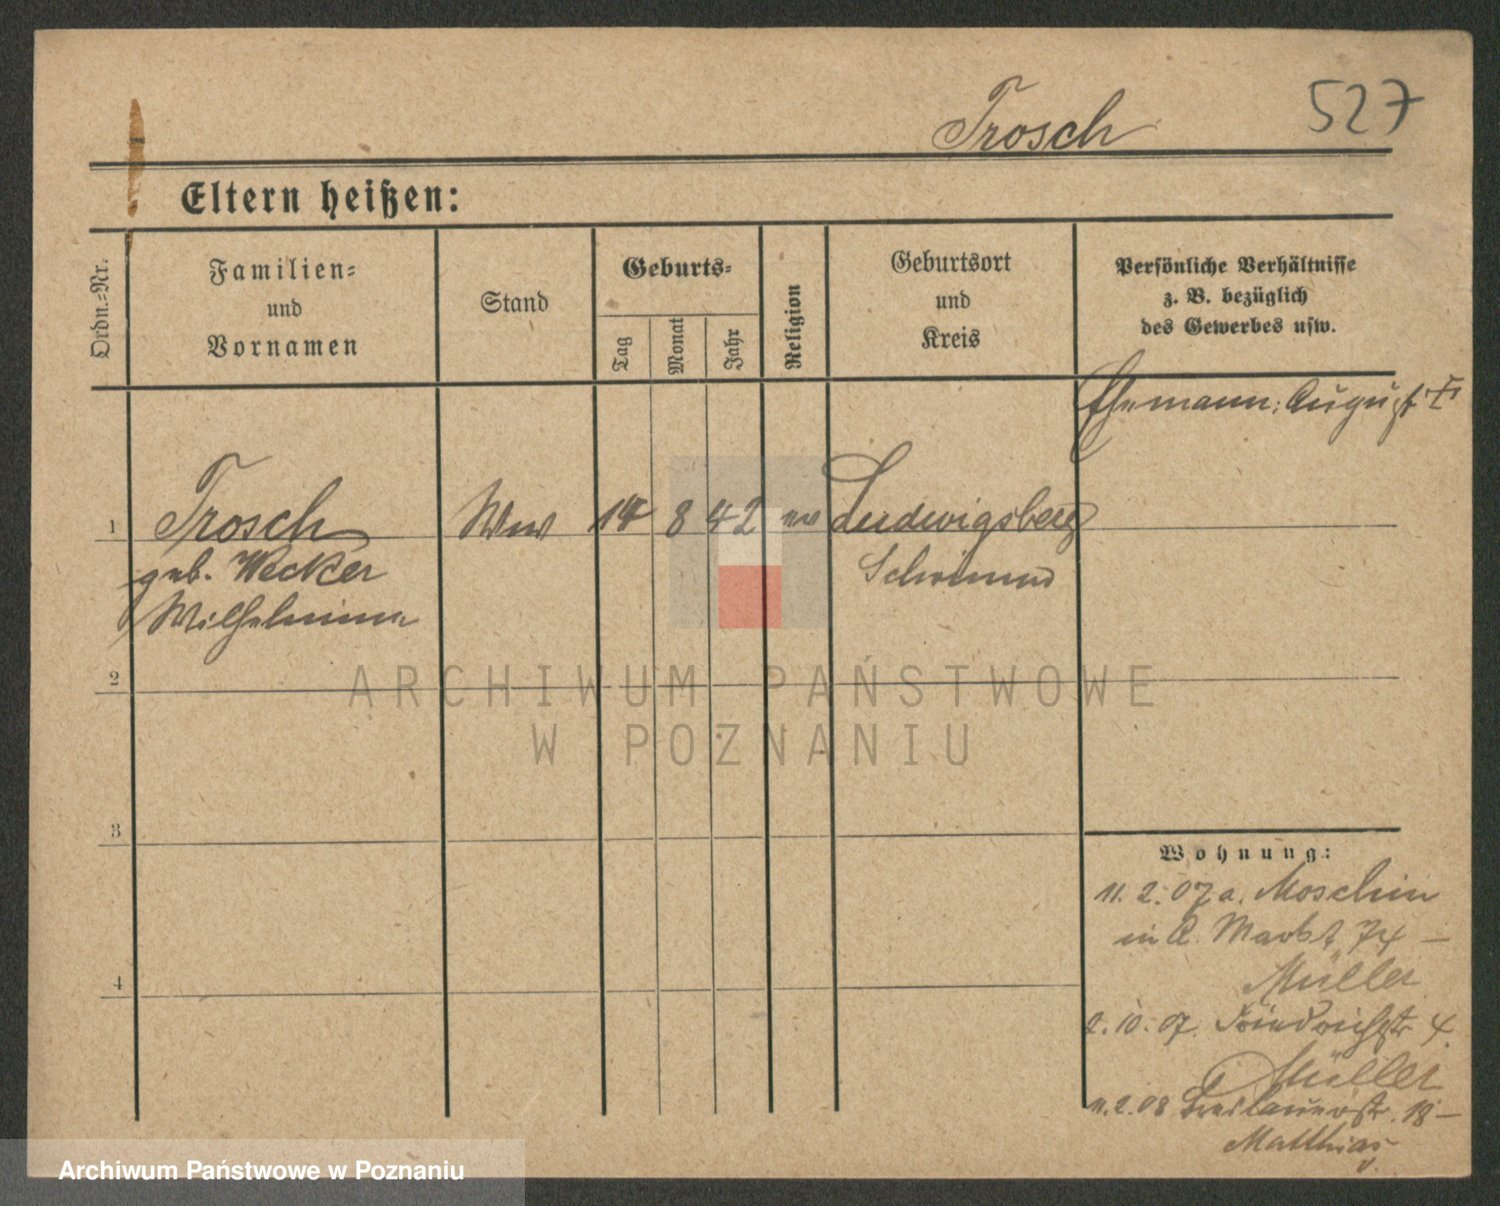 Trosch
527
Eltern heißen:
Ordn.-Nr.
Familien-
und
Vornamen
Stand
Geburts-
Tag
Monat
Jahr
Religion
Geburtsort
und
Kreis
Persönliche Verhältnisse
z. B. bezüglich
des Gewerbes usw.
Ehemann: August
1
Trosch
Wwe
14 8 42
ev
Ludwigsberg
geb. Wecker
Schrimm
Wilhelmine
2
ARCHIWUM PAŃSTWOWE
W POZNANIU
3
Wohnung:
11. 2. 07 a. Moschin
in Markt 74 –
Müller
4
2. 10. 07. Friedrichstr. 4.
Müller
11. 2. 08 Breslauerstr. 18 –
Matthias
Archiwum Państwowe w Poznaniu